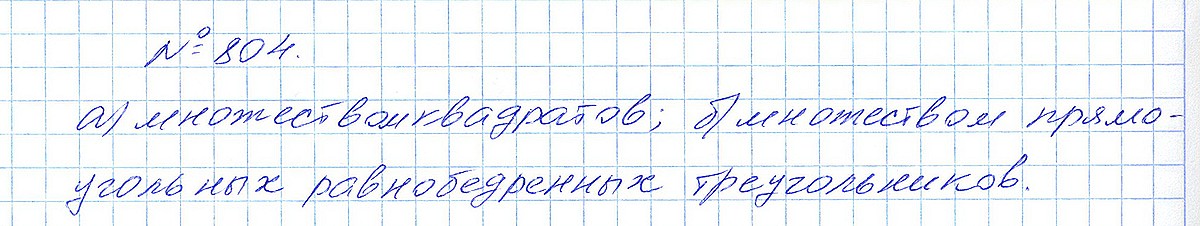 № 804.
а) множеством квадратов; б) множеством прямо-
угольных равнобедренных треугольников.